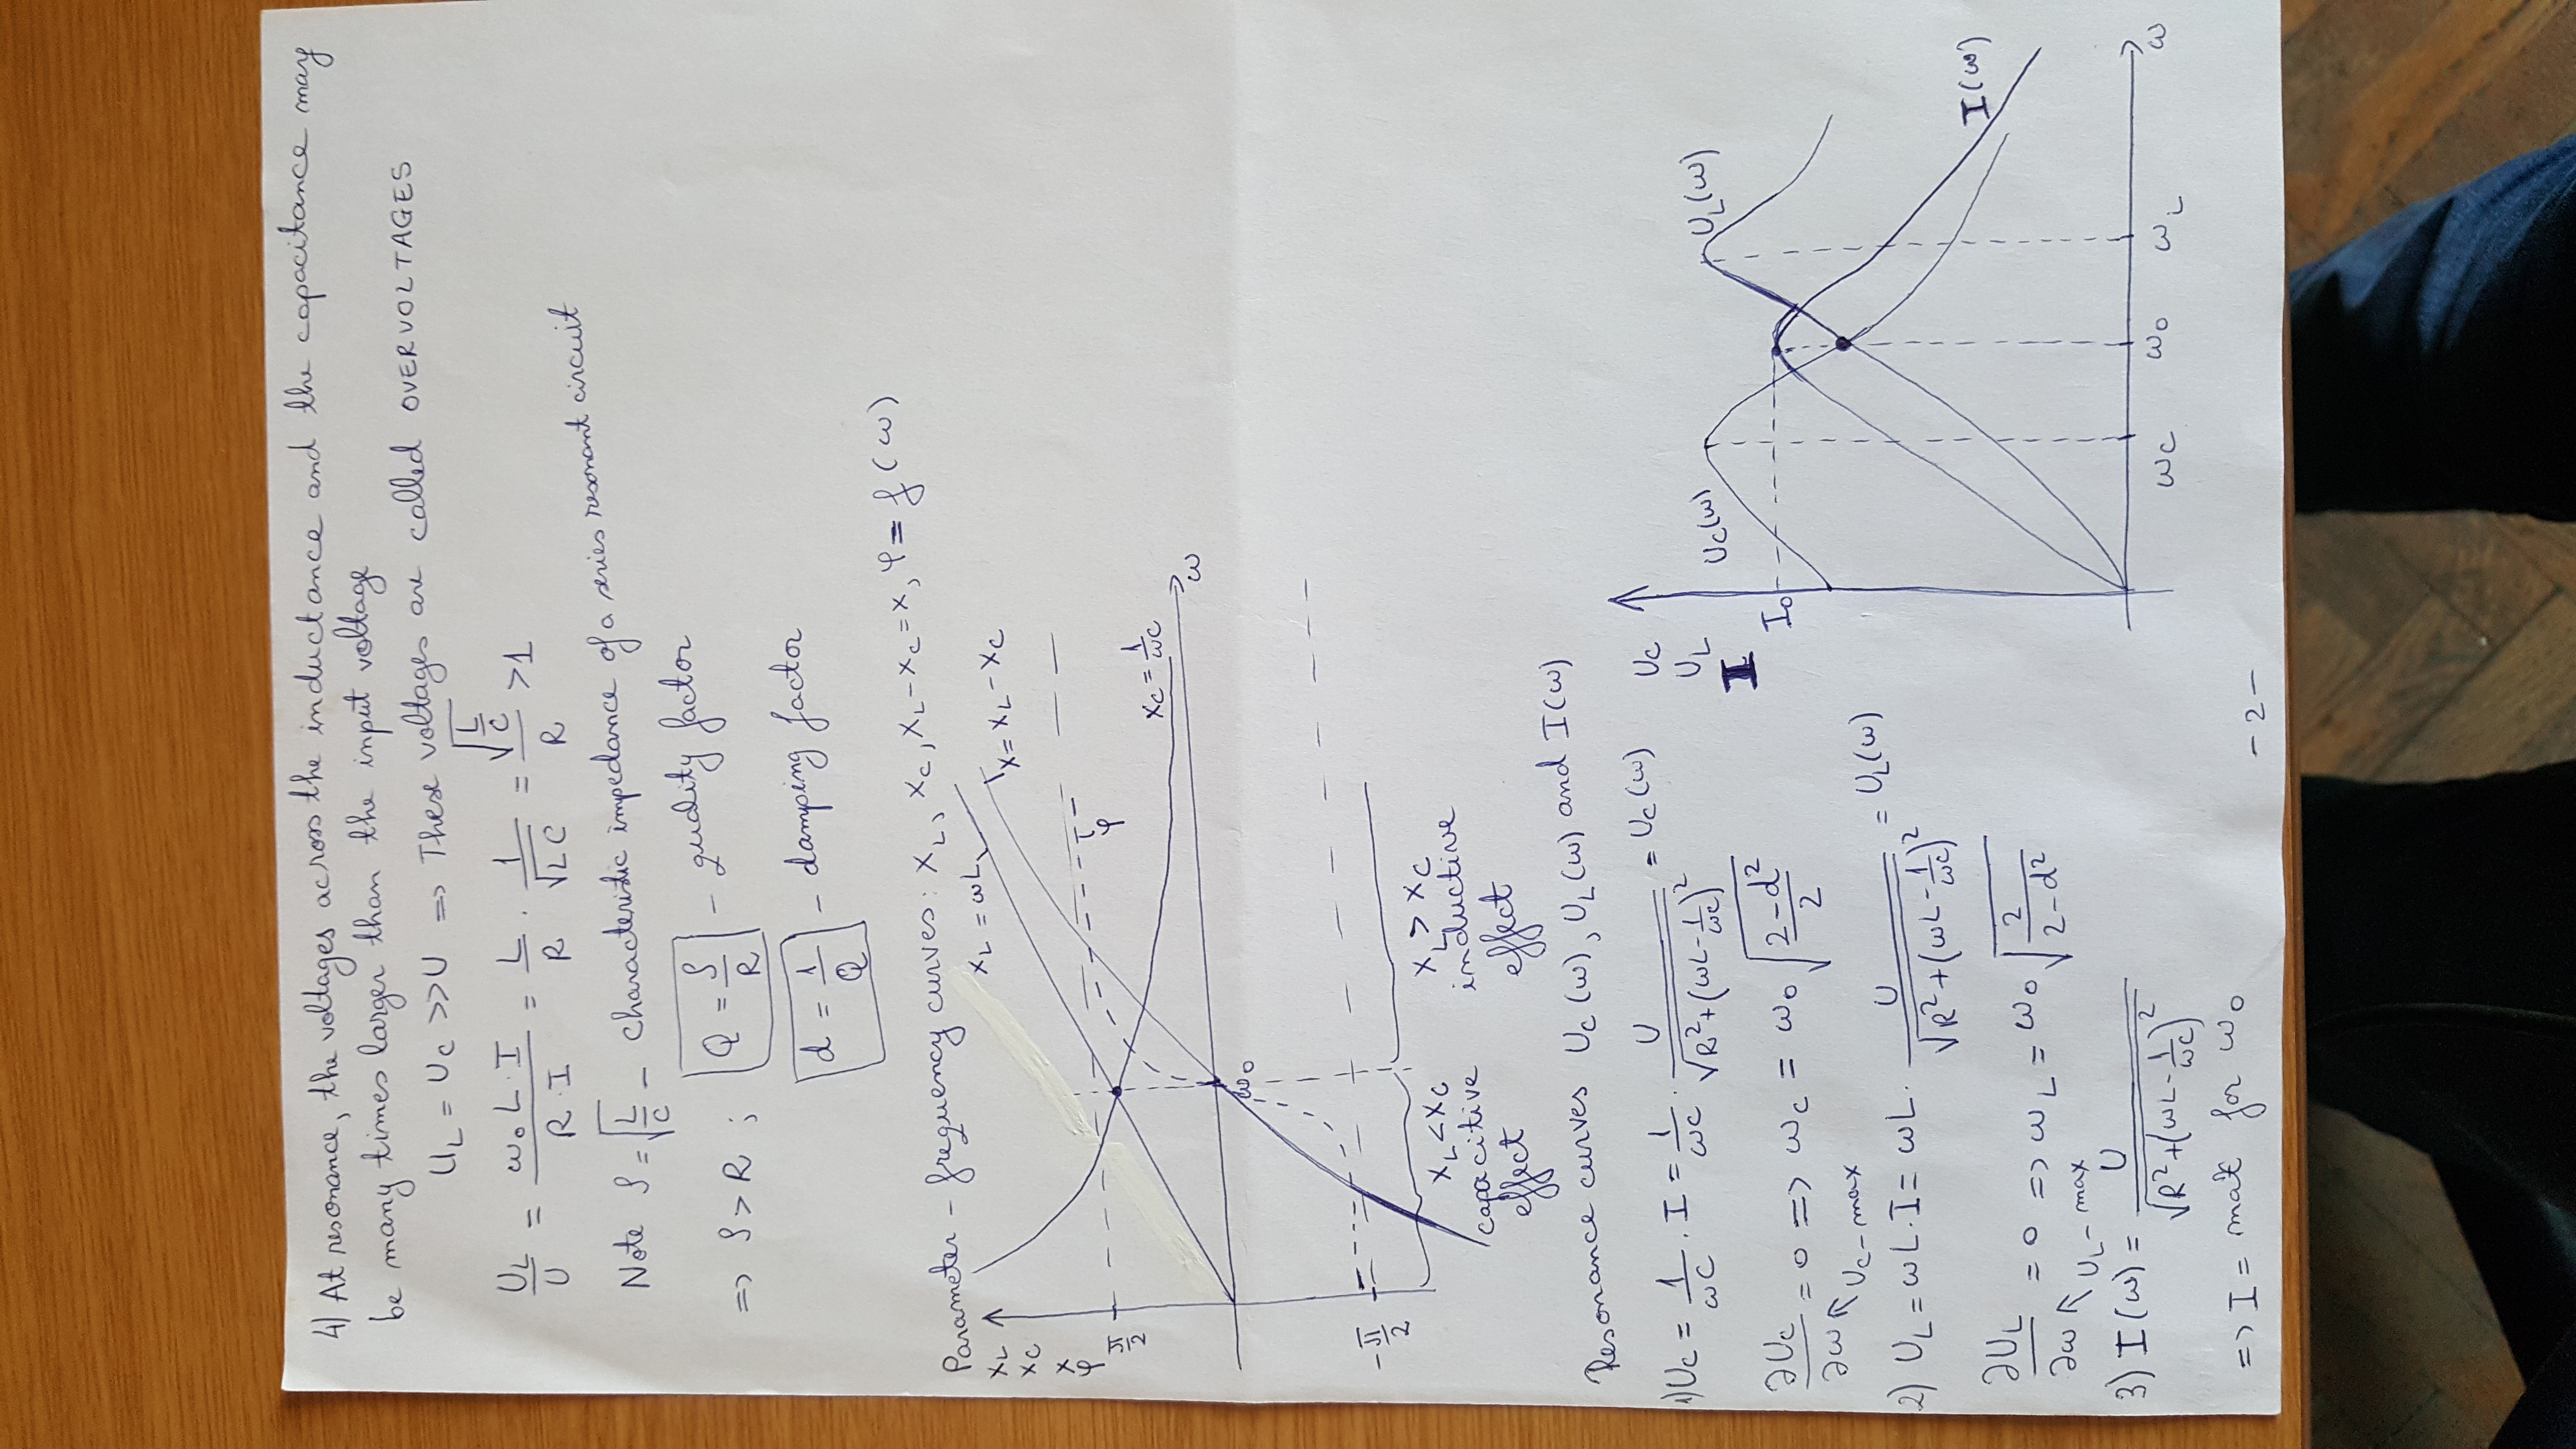 4) At resonance, the voltages across the inductance and the capacitance may
be many times larger than the input voltage
U_L = U_C >> U => These voltages are called OVERVOLTAGES
U_L/U = (ω₀L·I)/(R·I) = L/R · 1/√(LC) = √(L/C)/R > 1
Note ρ = √(L/C) - characteristic impedance of a series resonant circuit
=> ρ > R ; Q = ρ/R - quality factor
d = 1/Q - damping factor
Parameter - frequency curves: X_L, X_C, X_L - X_C = X, φ = f(ω)
X_L
X_C
X
φ
π/2
-π/2
X_L = ωL
X = X_L - X_C
φ
X_C = 1/ωC
ω
ω₀
X_L < X_C
capacitive
effect
X_L > X_C
inductive
effect
Resonance curves U_C(ω), U_L(ω) and I(ω)
1) U_C = 1/ωC · I = 1/ωC · U/√(R²+(ωL-1/ωC)²) = U_C(ω)
∂U_C/∂ω = 0 => ω_C = ω₀ √((2-d²)/2)
U_C-max
2) U_L = ωL·I = ωL · U/√(R²+(ωL-1/ωC)²) = U_L(ω)
∂U_L/∂ω = 0 => ω_L = ω₀ √(2/(2-d²))
U_L-max
3) I(ω) = U/√(R²+(ωL-1/ωC)²)
=> I = mat for ω₀
U_C
U_L
I
I₀
U_C(ω)
U_L(ω)
I(ω)
ω_C
ω₀
ω_L
ω
-2-